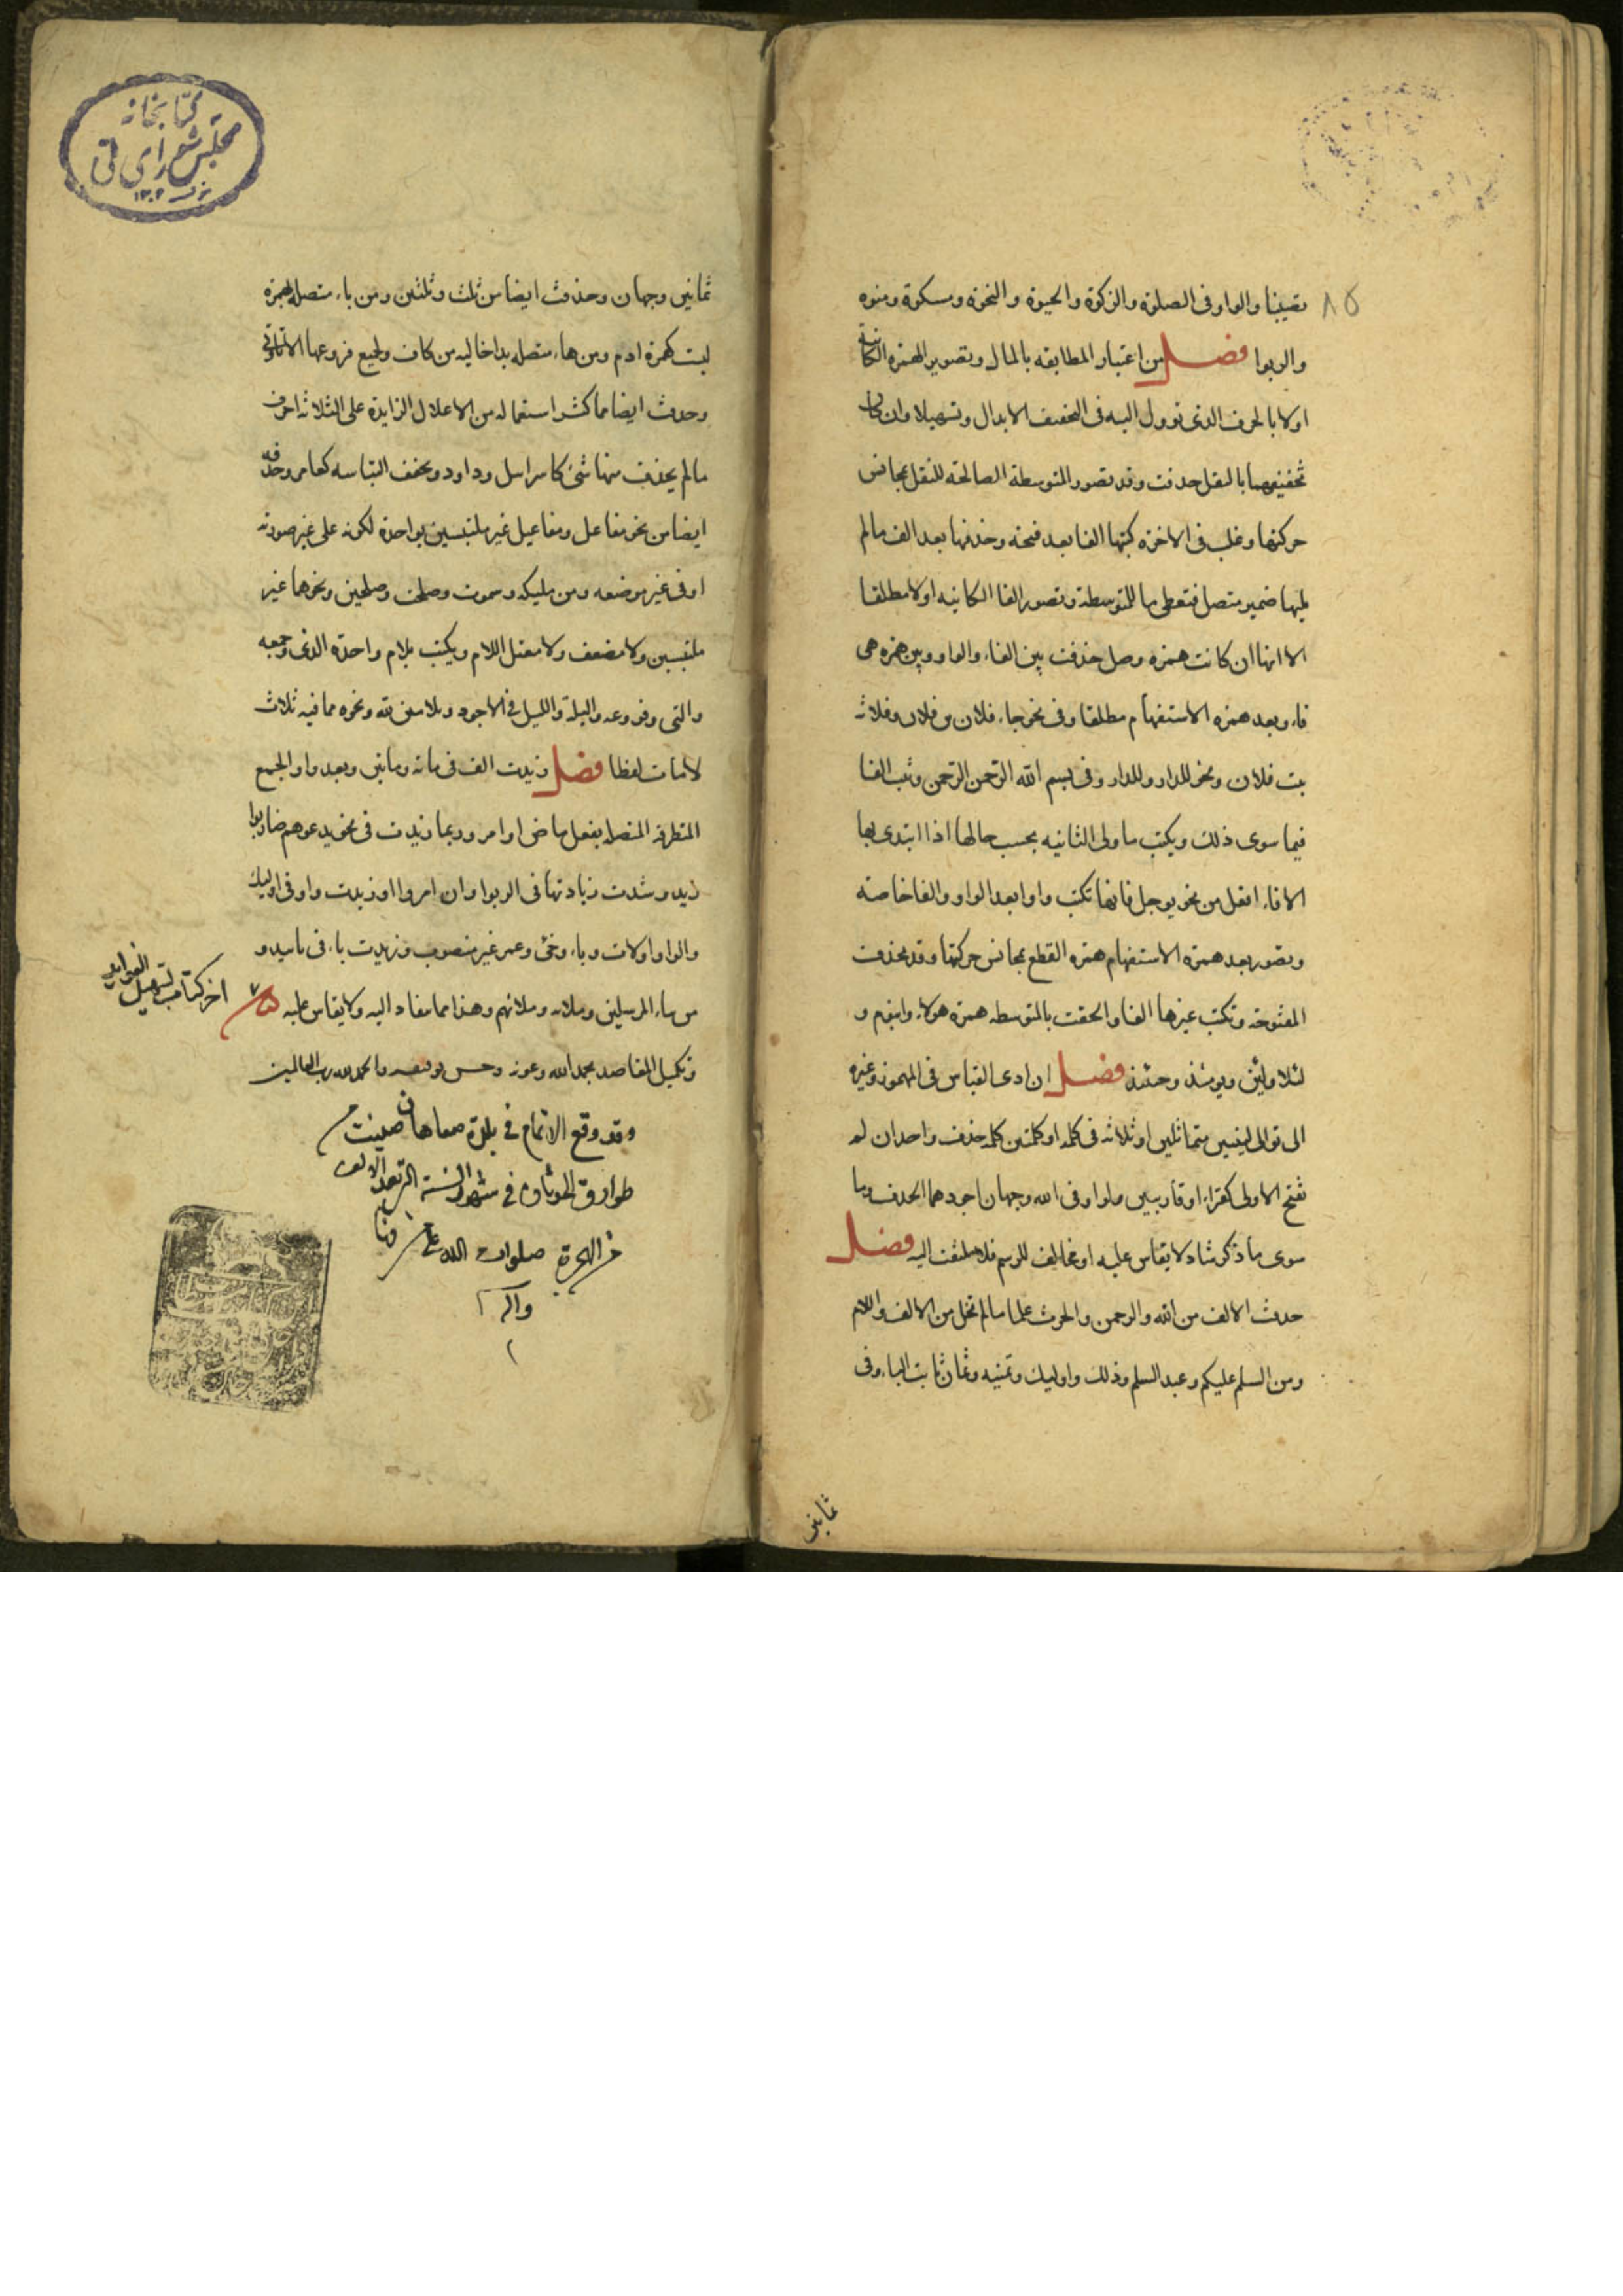 ٨٥
تعيينا والواو فى الصلوة والزكوة والحيوة والنجوة ومشكوة ومنوة
والربوا فصل من اعتبار المطابقه بالمال وتصوير الهمزه الكائنة
اولا بالحرف الذى تؤول اليه فى التخفيف الابدال وتسهيلا وان كان
تخفيفهما بالنقل حذفت وقد تصور المتوسطة الصالحة للنقل بمجانس
حركتها وغلب فى الاخرة كتبها الفا بعد فتحة وحذفها بعد الف مالم
يلها ضمير متصل فتعطى ما للمتوسطة وتصور الفا الكائنه اولا مطلقا
الا انها ان كانت همزه وصل حذفت بين الفاء والواو وبين همزه هى
فاء وبعد همزه الاستفهام مطلقا وفى نحو جاء فلان بن فلان وفلانه
بنت فلان ونحو للدار وللدار وفى بسم الله الرحمن الرحمن وثبت الفا
فيما سوى ذلك ويكتب ما ولى الثانيه بحسب حالها اذا ابتدى بها
الا فاء افعل من نحو يوجل فانها تكتب واوا بعد الواو والفا خاصه
وتصور بعد همزة الاستفهام همزه القطع بمجانس حركتها وقد تحذف
المفتوحة وتكتب غيرها الفا والحقت بالمتوسطه همزة هولاء وابنوم و
لئلا ولئن ويومئذ وحينئذ فصل ان ادى القياس فى المهموز وغيره
الى توالى لينين متماثلين او ثلاثه فى كلمه او كلمتين كلمه حذف واحد ان لم
تفتح الاولى كقراء او قاريين ملوا وفى الله وجهان اجودهما الحذف وما
سوى ما ذكر شاذ لا يقاس عليه او مخالف للرسم فلا يلتفت اليه فصل
حذفت الالف من الله والرحمن والحرث علما مالم تخل من الالف واللام
ومن السلم عليكم وعبد السلم وذلك واوليك وثمنيه وثمان ثابت الياء وفى
ثمانين
كتابخانه
مجلس شوراى ملى
١٣٠٢
ثمانين وجهان وحذفت ايضا من ثلث وثلثين ومن ياء متصله بهمزة
ليست كهمزة ادم ومن هاء متصله بذا خاليه من كاف ولجميع فروعها الا تا وتى
وحذفت ايضا مما كثر استعماله من الاعلال الزايدة على الثلاثه احرف
مالم يحذف منها شئ كاسرايل وداود ويخفف التباسه كعامر وحذفه
ايضا من نحو مفاعل ومفاعيل غير ملتبسين بواحدة لكونه على غير صورته
او فى غير موضعه ومن مليكه وسموت وصلحت وصلحين ونحوهما غير
ملتبسين ولا مضعف ولا معتل اللام ويكتب بلام واحدة الذى وجمعه
والتى وفروعه واليلة والليل فى الاجود وبلامين لله ونحوه مما فيه ثلاث
لامات لفظا فصل زيدت الف فى مائه ومايتين وبعد واو الجمع
المتطرفه المتصله بفعل ماض او امر وربما زيدت فى نحو يدعو هم ضاربوا
زيد وشذت زيادتها فى الربوا وان امروا او زيدت واو فى اوليك
والوا واولات وياء وخى وعمر غير منصوب وزيدت ياء فى باييد و
من نباء المرسلين وملائه وملائهم وهذا مما ينقاد اليه ولا يقاس عليه
وتكميل المقاصد بحمد الله وعونه وحسن توفيقه والحمد لله رب العالمين
اخر كتاب تسهيل الفوايد
وقد وقع الاتمام فى بلدة صفاهان صينت
طوارق الحدثان فى شهور السنة الالف
من الهجرة صلوات الله على
واله